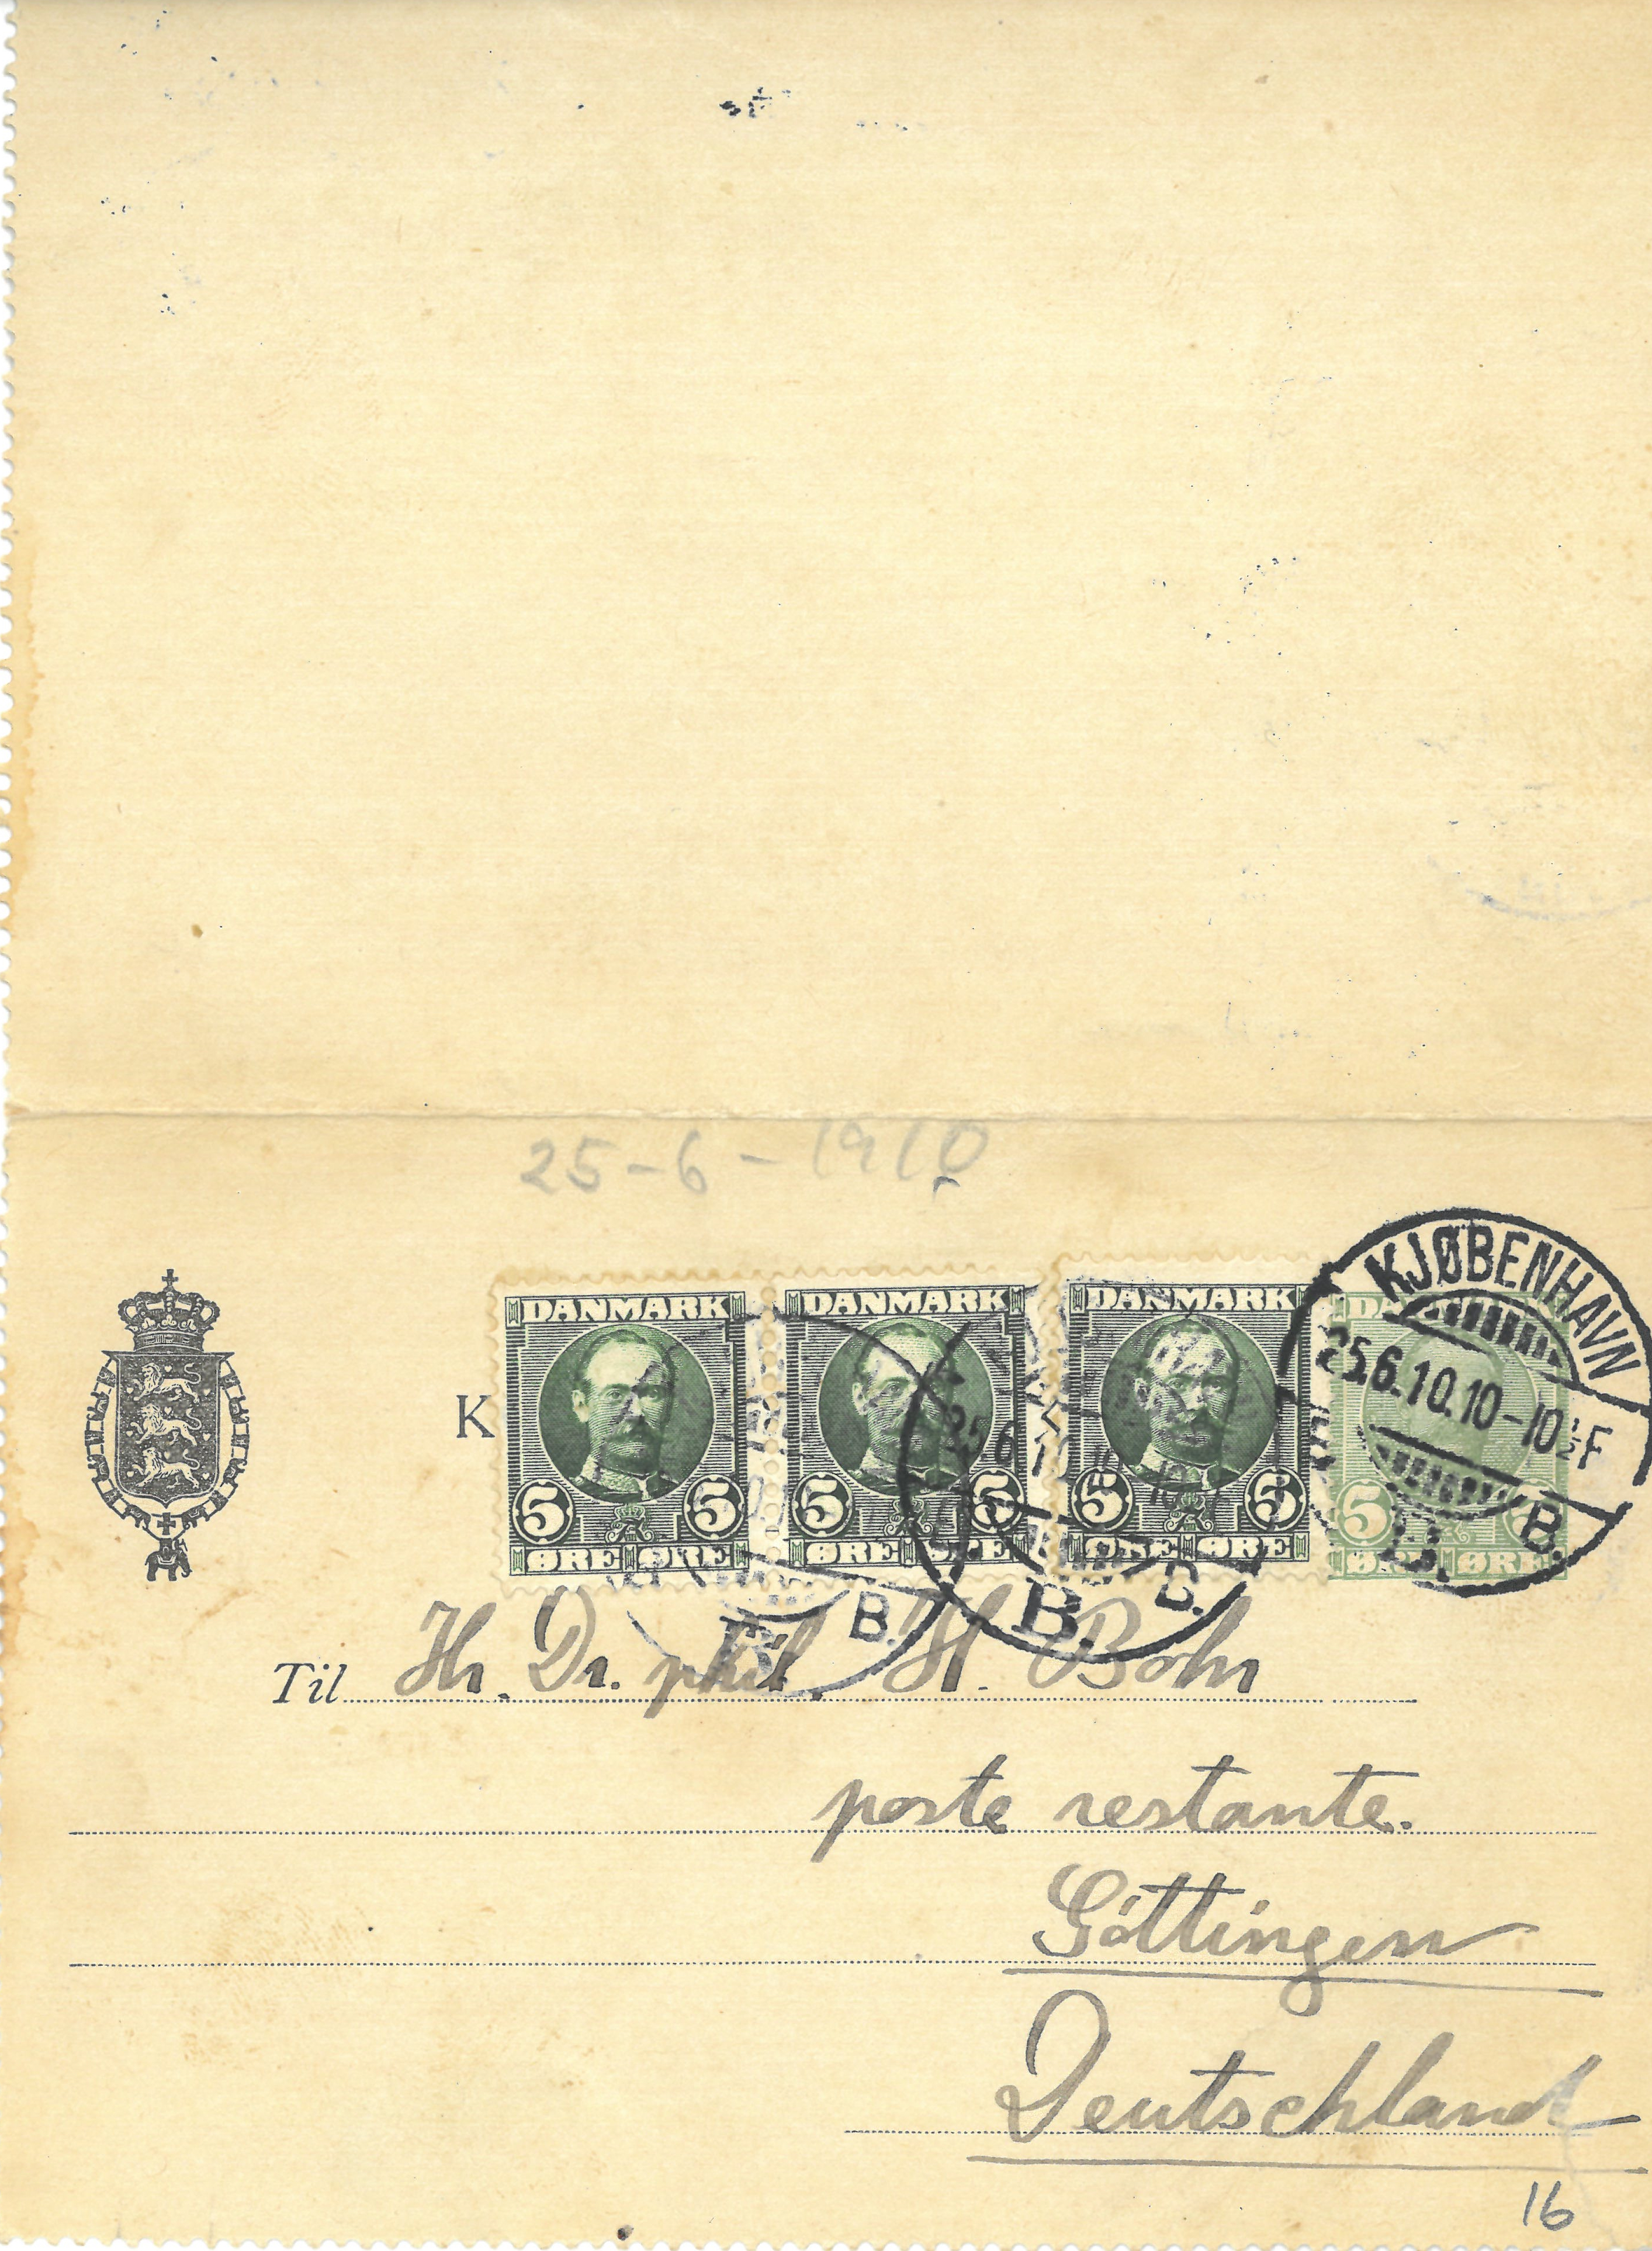 25-6-1910
K
DANMARK DANMARK DANMARK
5 5 5 5 5 5 5
ØRE ØRE ØRE ØRE ØRE ØRE ØRE ØRE
KJØBENHAVN
25.6.10.10-10½F
B.
B.
B.
B.
B.
Til Hr. Dr. phil. H. Bohr
poste restante.
Göttingen
Deutschland
16